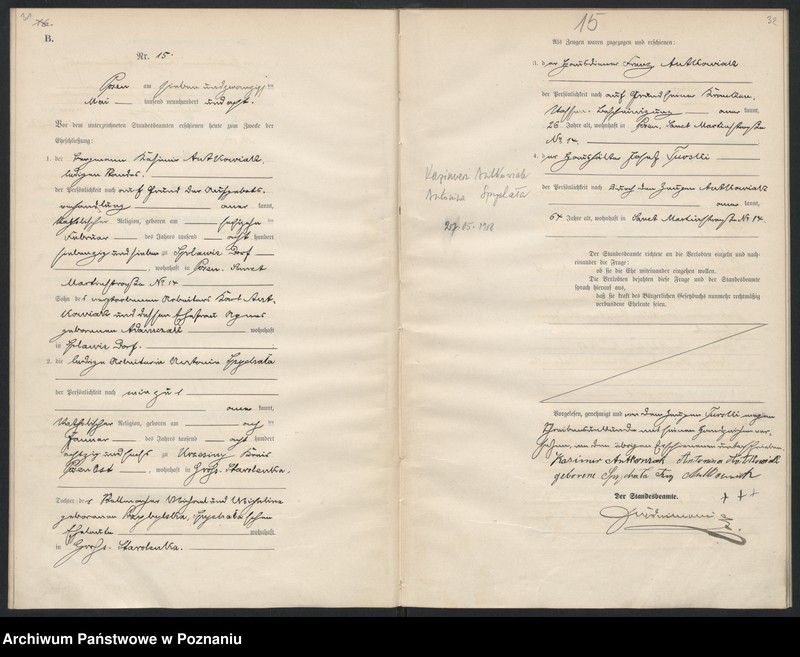 B.
Nr. 15.
Posen am sieben und zwanzigsten
Mai tausend neunhundert und acht.
Vor dem unterzeichneten Standesbeamten erschienen heute zum Zwecke der
Eheschließung:
1. der Kasimir Antkowiak,
ledigen Standes.
der Persönlichkeit nach auf Grund der Aufgebots-
verhandlung anerkannt,
katholischer Religion, geboren am
Februar des Jahres tausend acht hundert
siebenzig und sieben zu Dorf
, wohnhaft in Posen, Sanct
Martinstraße No 14
Sohn des verstorbenen Arbeiters Karl Ant-
kowiak und dessen Ehefrau Agnes
geborenen Adamczak wohnhaft
in Dorf.
2. die ledige Arbeiterin Antonie Spychala
der Persönlichkeit nach wie zu 1
anerkannt,
katholischer Religion, geboren am
Januar des Jahres tausend acht hundert
achtzig und sechs zu Kreis
Posen Ost, wohnhaft in Groß Starolenka.
Tochter der Michael und
geborenen Spychalaschen
Eheleute wohnhaft
in Groß Starolenka.
15
32
Als Zeugen waren zugezogen und erschienen:
3. der Hausdiener Franz Antkowiak
der Persönlichkeit nach auf Grund seiner Kranken-
kassen-Bescheinigung anerkannt,
26 Jahre alt, wohnhaft in Posen, Sanct Martinstraße
No 14.
4. der Haushälter Josef
der Persönlichkeit nach durch den Zeugen Antkowiak
anerkannt,
64 Jahre alt, wohnhaft in Sanct Martinstraße No 14.
Kazimierz Antkowiak
Antonina Spychała
27.05.1908
Der Standesbeamte richtete an die Verlobten einzeln und nach-
einander die Frage:
ob sie die Ehe miteinander eingehen wollen.
Die Verlobten bejahten diese Frage und der Standesbeamte
sprach hierauf aus,
daß sie kraft des Bürgerlichen Gesetzbuchs nunmehr rechtmäßig
verbundene Eheleute seien.
Vorgelesen, genehmigt und von dem Zeugen wegen
Schreibensunkunde mit seinem Handzeichen ver-
sehen, von den übrigen Erschienenen unterschrieben
Kazimer Antkowiak Antonina Antkowiak
geborene Spychala Antkowiak
+ + +
Der Standesbeamte.
Archiwum Państwowe w Poznaniu